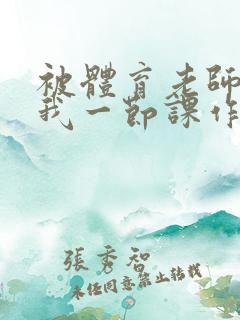 被體育老師
我一節課作
張秀智
未任同意禁止转载